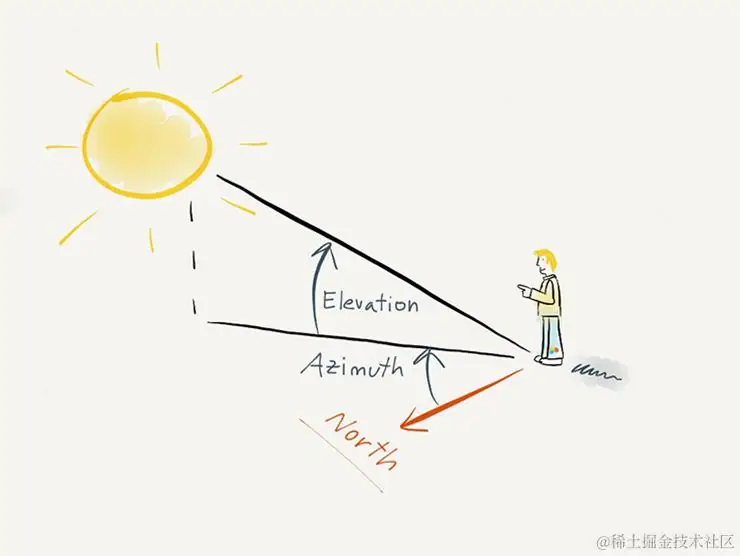 Elevation
Azimuth
North
@稀土掘金技术社区